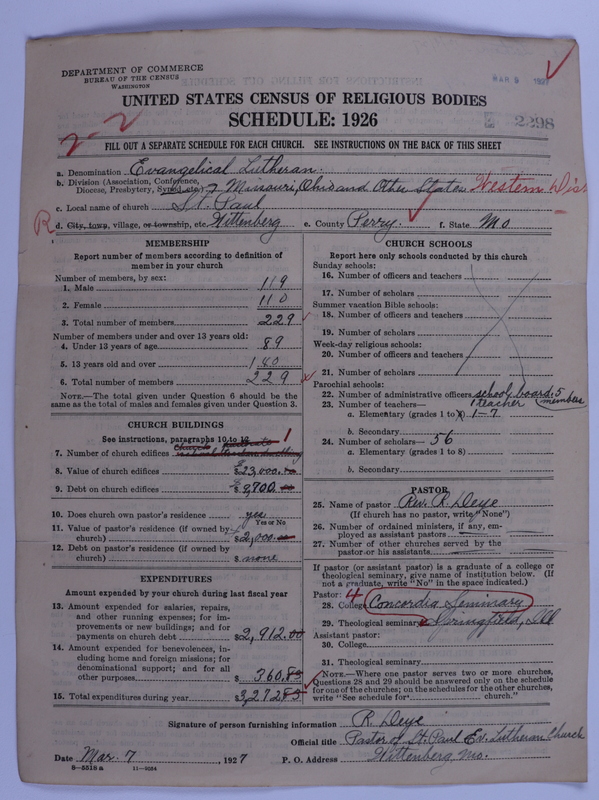 DEPARTMENT OF COMMERCE
BUREAU OF THE CENSUS
WASHINGTON
MAR 9 1927
UNITED STATES CENSUS OF RELIGIOUS BODIES
SCHEDULE: 1926
2298
2-2
FILL OUT A SEPARATE SCHEDULE FOR EACH CHURCH. SEE INSTRUCTIONS ON THE BACK OF THIS SHEET
a. Denomination Evangelical Lutheran.
b. Division (Association, Conference, Diocese, Presbytery, Synod, etc.) of Missouri, Ohio and Other States Western Dis
c. Local name of church St. Paul
R d. City, town, village, or township, etc. Wittenberg e. County Perry. f. State Mo
MEMBERSHIP
Report number of members according to definition of
member in your church
Number of members, by sex:
1. Male 119
2. Female 110
3. Total number of members 229
Number of members under and over 13 years old:
4. Under 13 years of age 89
5. 13 years old and over 140
6. Total number of members 229
NOTE.—The total given under Question 6 should be the
same as the total of males and females given under Question 3.
CHURCH BUILDINGS
See instructions, paragraphs 10 to 12
7. Number of church edifices 1
8. Value of church edifices $23,000.00
9. Debt on church edifices $9,800.00
10. Does church own pastor's residence yes
Yes or No
11. Value of pastor's residence (if owned by
church) $2,000.00
12. Debt on pastor's residence (if owned by
church) $ none
EXPENDITURES
Amount expended by your church during last fiscal year
13. Amount expended for salaries, repairs,
and other running expenses; for im-
provements or new buildings; and for
payments on church debt $2,912.00
14. Amount expended for benevolences, in-
cluding home and foreign missions; for
denominational support; and for all
other purposes $360.83
15. Total expenditures during year $3,272.83
CHURCH SCHOOLS
Report here only schools conducted by this church
Sunday schools:
16. Number of officers and teachers
17. Number of scholars
Summer vacation Bible schools:
18. Number of officers and teachers
19. Number of scholars
Week-day religious schools:
20. Number of officers and teachers
21. Number of scholars
Parochial schools:
22. Number of administrative officers school board: 5
members
23. Number of teachers— 1 teacher
a. Elementary (grades 1 to 8) 1-7
b. Secondary
24. Number of scholars— 56
a. Elementary (grades 1 to 8)
b. Secondary
PASTOR
25. Name of pastor Rev. R. Deye
(If church has no pastor, write "None")
26. Number of ordained ministers, if any, em-
ployed as assistant pastors
27. Number of other churches served by the
pastor or his assistants
If pastor (or assistant pastor) is a graduate of a college or
theological seminary, give name of institution below. (If
not a graduate, write "No" in the space indicated.)
Pastor: 4
28. College Concordia Seminary
29. Theological seminary Springfield, Ill
Assistant pastor:
30. College
31. Theological seminary
NOTE.—Where one pastor serves two or more churches,
Questions 28 and 29 should be answered only on the schedule
for one of the churches; on the schedules for the other churches,
write "See schedule for church."
Signature of person furnishing information R. Deye
Official title Pastor of St. Paul Ev. Lutheran Church
Date Mar. 7, 1927 P. O. Address Wittenberg, Mo.
8—5518 a 11—9054